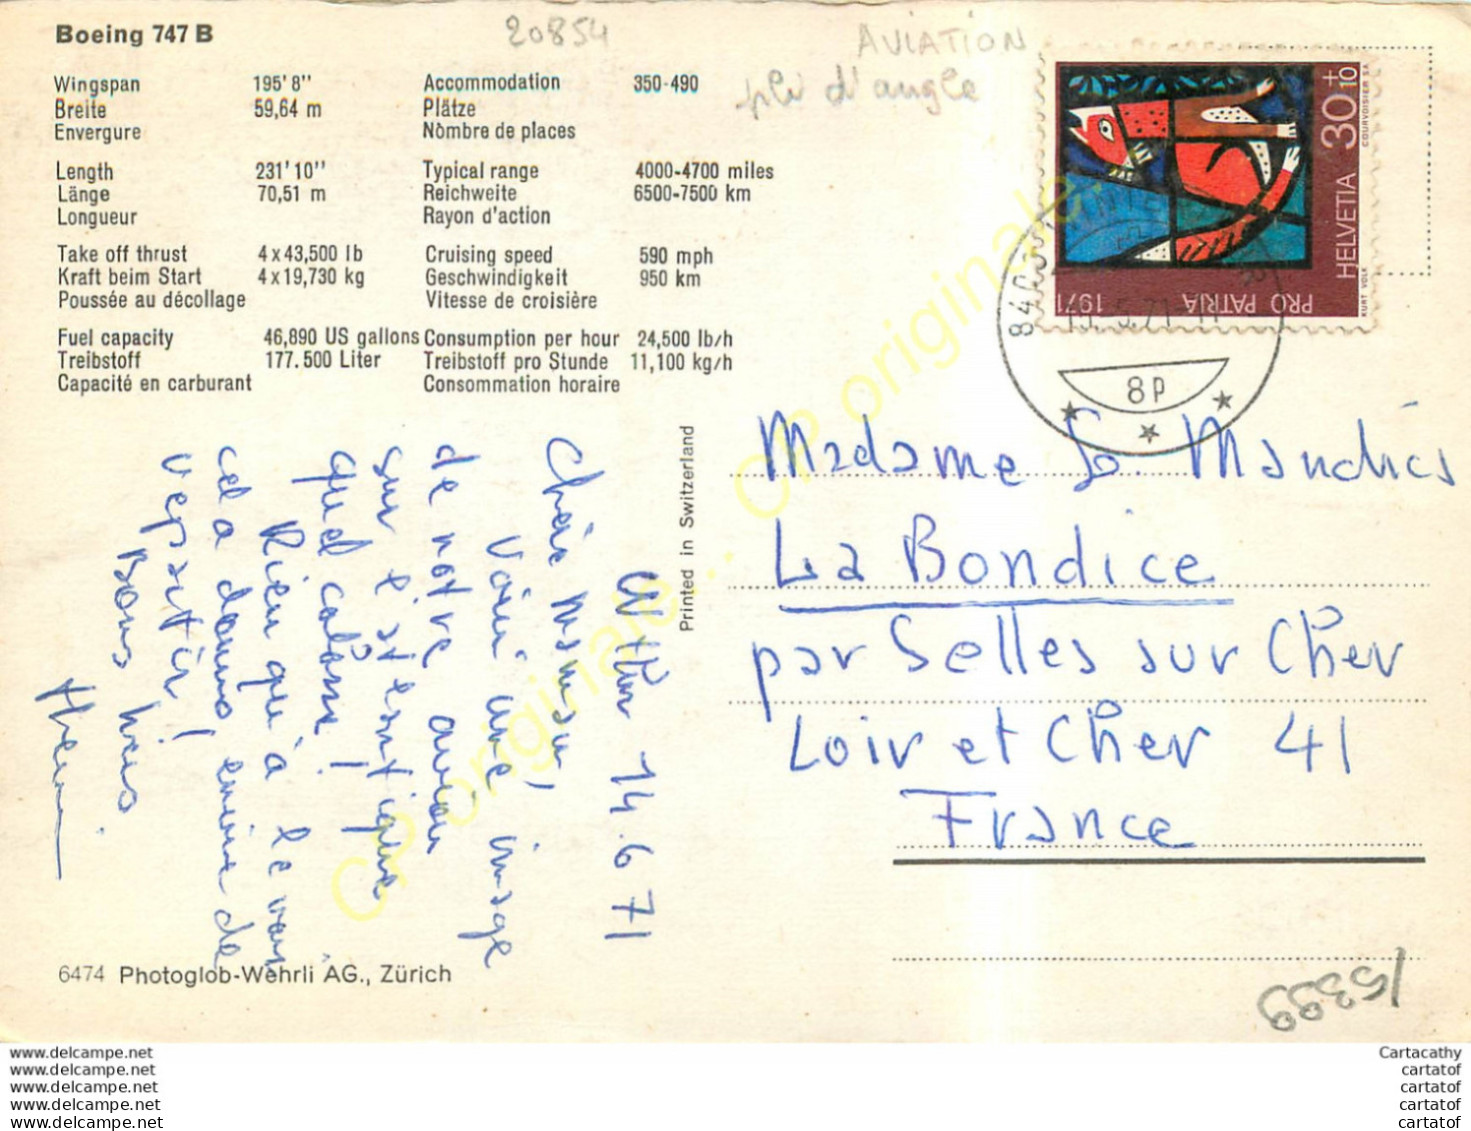 Boeing 747 B
20854
AVIATION
pli d'angle
Wingspan 195'8''
Breite 59,64 m
Envergure
Accommodation 350-490
Plätze
Nombre de places
Length 231'10''
Länge 70,51 m
Longueur
Typical range 4000-4700 miles
Reichweite 6500-7500 km
Rayon d'action
Take off thrust 4x43,500 lb
Kraft beim Start 4x19,730 kg
Poussée au décollage
Cruising speed 590 mph
Geschwindigkeit 950 km
Vitesse de croisière
Fuel capacity 46,890 US gallons
Treibstoff 177.500 Liter
Capacité en carburant
Consumption per hour 24,500 lb/h
Treibstoff pro Stunde 11,100 kg/h
Consommation horaire
HELVETIA 30+10
PRO PATRIA 1971
COURVOISIER SA
KURT VOLK
8400
8p
Printed in Switzerland
14.6.71
Chère Maman,
Voici une image
de notre avion
sur l'estérique
quel colosse!
Rien qu'à le voir
cela donne envie de
repartir!
Bons
Madame S.
La Bondice
par Selles sur Cher
Loir et Cher 41
France
6474 Photoglob-Wehrli AG., Zürich
15399
CP originale...
CP originale...
www.delcampe.net
www.delcampe.net
www.delcampe.net
www.delcampe.net
www.delcampe.net
Cartacathy
cartatof
cartatof
cartatof
cartatof